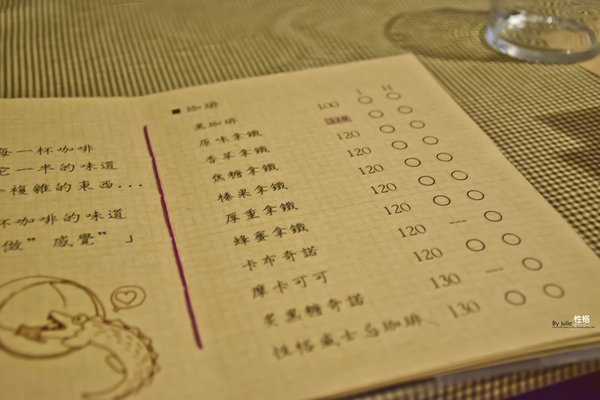 每一杯咖啡
它一半的味道
複雜的東西...
杯咖啡的味道
做” 感覺” 」
■ 咖啡 I H
黑咖啡 100
原味拿鐵
香草拿鐵 120
焦糖拿鐵 120
榛果拿鐵 120
厚重拿鐵 120
蜂蜜拿鐵 120
卡布奇諾 120 —
摩卡可可 120
炙黑糖奇諾 130 —
性格威士忌咖啡 130
By Julie 性格